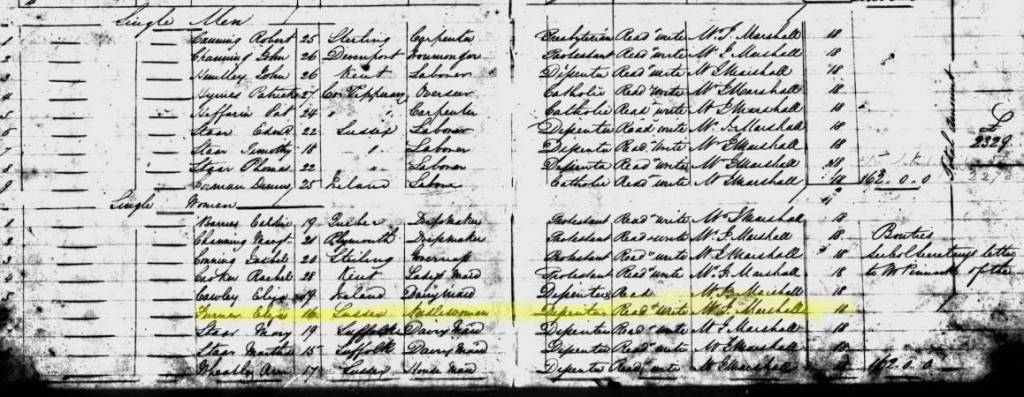 Single Men
1 Canning Robert 25 Sterling Carpenter Presbyterian Read write Mr J. Marshall 18
2 Channing John 26 Devenport Ironmonger Protestant Read write Mr J Marshall 18
3 Huntley John 26 Kent Laborer Dissenter Read write Mr J Marshall 18
4 Hynes Patrick 27 Co Tipperary Overseer Catholic Read write Mr J Marshall 18
5 Hefferin Pat 24 " " Carpenter Catholic Read write Mr J Marshall 18
6 Starr Edwd 22 Sussex Laborer Dissenter Read write Mr J. Marshall 18
7 Starr Timothy 18 " Laborer Dissenter Read write Mr J Marshall 18
8 Starr Thomas 22 Laborer Dissenter Read write Mr J Marshall 18
9 Dennis 25 Ireland Labore Catholic Read write Mr J Marshall 18 162.0.0
Total Amount
£
2329
Single Women
1 Barnes 19 Dressmaker Protestant Read write Mr J Marshall 18
2 Channing Margt 21 Plymouth Dressmaker Protestant Read write Mr J Marshall 18 Bounties
3 Conning Isabel 20 Sterling Protestant Read write Mr J Marshall 18 See Col Secretarys letter
4 Rachel 28 Kent Ladys Maid Protestant Read write Mr J Marshall 18 to Mr Pinnock of the
5 Cowley Eliza 19 Ireland Dairy Maid Dissenter Read Mr J Marshall 18
Turner Eliza 16 Sussex Needlewoman Dissenter Read write Mr J. Marshall 18
Starr Mary 19 Suffolk Dairy Maid Dissenter Read write Mr J Marshall 18
Starr Martha 15 Suffolk Dairy Maid Dissenter Read write Mr J Marshall 18
Wheatley Ann 17 Sussex House Maid Dissenter Read write Mr J Marshall 18 162.0.0